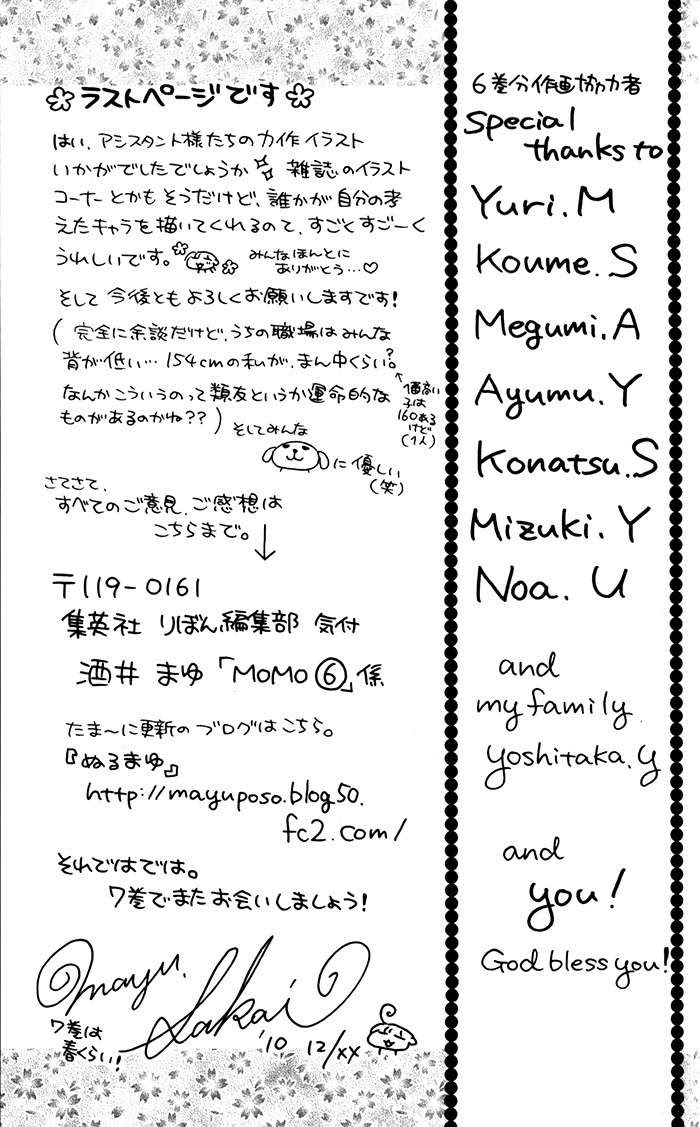 ラストページです
はい、アシスタント様たちの力作イラスト
いかがでしたでしょうか 雑誌のイラスト
コーナーとかもそうだけど、誰かが自分の考
えたキャラを描いてくれるのって、すごくすごーく
うれしいです。
みんなほんとに
ありがとう…♡
そして 今後とも よろしくお願いしますです!
( 完全に余談だけど、うちの職場はみんな
背が低い… 154cmの私が、まん中くらい?
なんかこういうのって類友というか運命的な
ものがあるのかね?? )
1番高い
子は
160ある
けど
(1人)
そしてみんな
に優しい
(笑)
さてさて、
すべてのご意見、ご感想は
こちらまで。↓
〒119-0161
集英社 りぼん編集部 気付
酒井 まゆ「MOMO⑥」係
たま〜に更新の ブログはこちら。
『ぬるまゆ』
http://mayuposo.blog50.
fc2.com/
それではでは。
7巻でまたお会いしましょう!
mayu.
Sakai
7巻は
春くらい!
'10 12/xx
6巻分作画協力者
Special
thanks to
Yuri.M
Koume.S
Megumi.A
Ayumu.Y
Konatsu.S
Mizuki.Y
Noa.U
and
my family
yoshitaka.y
and
you!
God bless you!